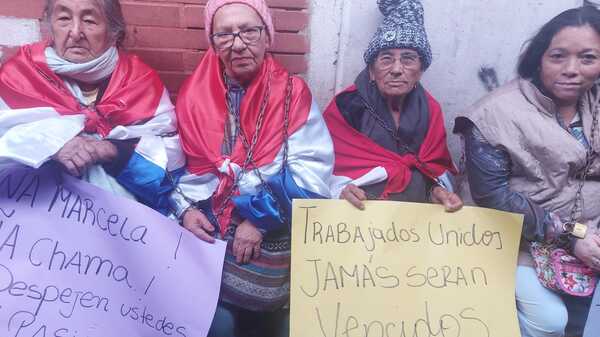 ÑA MARCELA!
ÑA CHAMA!
Despejen ustedes
TRABAJADOS UNIDOS
JAMÁS SERAN
VENCIDOS